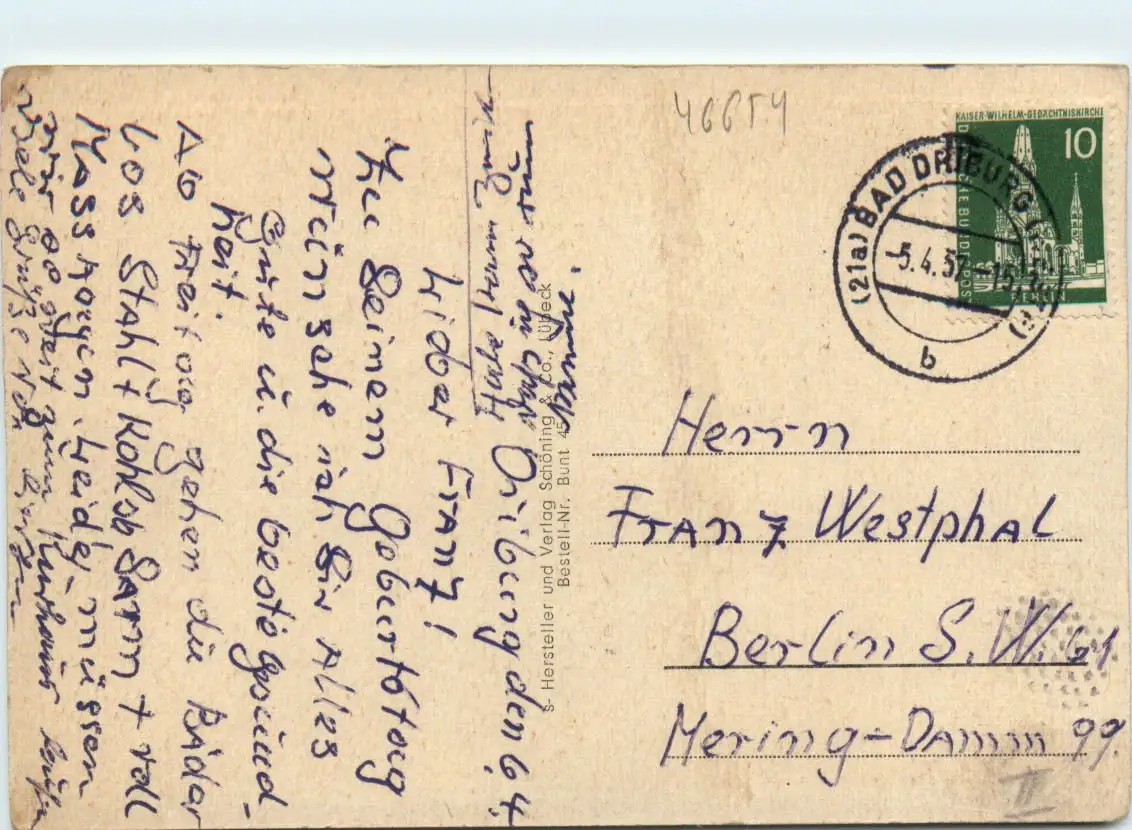 46654
KAISER-WILHELM-GEDÄCHTNISKIRCHE
10
DEUTSCHE BUNDESPOST
BERLIN
(21a) BAD DRIBURG
-5.4.57.-15
b
Driburg den 6.4
Lieber Franz!
Zu Deinem Geburtstag
wünsche ich Dir Alles
Gute u. die beste Gesund-
heit.
Ab Freitag gehen die Bäder
los Stahl + Kohlsb Darm + voll
Massagen. Leider müssen
wir so weit zum Kurhaus laufen
Viele Grüße von
s- Hersteller und Verlag Schöning & Co., Lübeck
Bestell-Nr. Bunt 45
Herrn
Franz Westphal
Berlin S.W. 61
Mering-Damm 99.
II